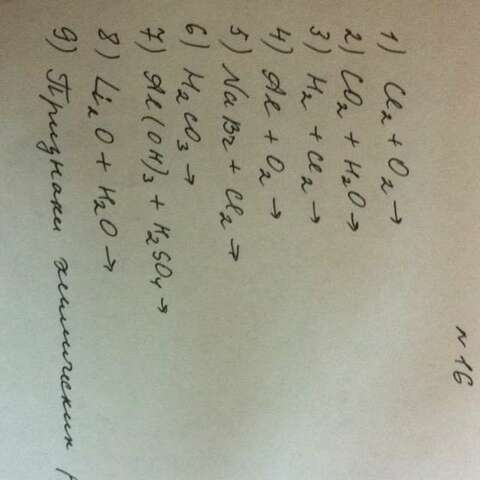 N 16
1) Cl₂ + O₂ →
2) CO₂ + H₂O →
3) H₂ + Cl₂ →
4) Al + O₂ →
5) NaBr + Cl₂ →
6) H₂CO₃ →
7) Al(OH)₃ + H₂SO₄ →
8) Li₂O + H₂O →
9) Признаки химических